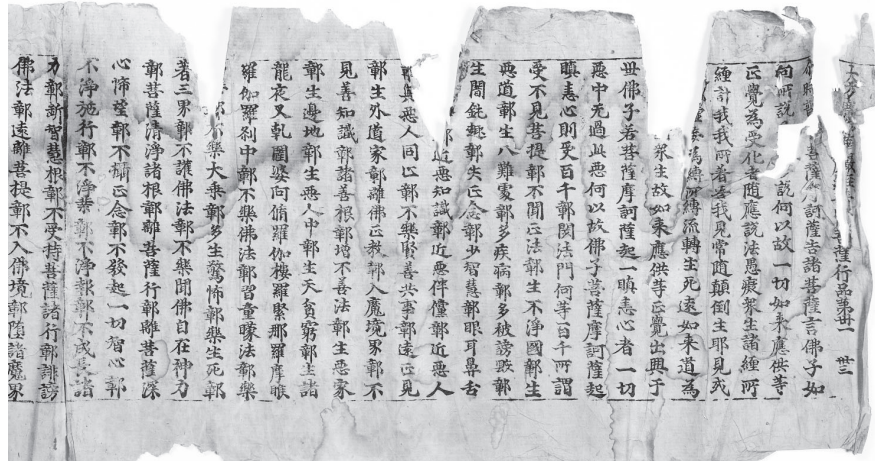 薩行品第卅一 卅三
菩薩摩訶薩告諸菩薩言佛子如
向所說 說何以故一切如來應供等
正覺為受化者隨應說法愚癡眾生諸纏所
纏計我我所著我見常隨顛倒生耶見或
為縛所縛流轉生死遠如來道為
眾生故如來應供等正覺出興于
世佛子若菩薩摩訶薩起一瞋恚心者一切
惡中无過此惡何以故佛子菩薩摩訶薩起
瞋恚心則受百千鄣閡法門何等百千所謂
受不見菩提鄣不聞正法鄣生不淨國鄣生
惡道鄣生八難處鄣多疾病鄣多被謗毀鄣
生闇鈍趣鄣失正念鄣少智慧鄣眼耳鼻舌
近惡知識鄣近惡伴黨鄣近惡人
鄣與惡人同止鄣不樂賢善共事鄣遠正見
鄣生外道家鄣離佛正教鄣入魔境界鄣不
見善知識鄣諸善根鄣增不善法鄣生惡家
鄣生邊地鄣生惡人中鄣生天貧窮鄣生諸
龍夜叉乹闥婆阿脩羅伽樓羅緊那羅摩睺
羅伽羅刹中鄣不樂佛法鄣習童矇法鄣樂
不樂大乘鄣多生驚怖鄣樂生死鄣
著三界鄣不護佛法鄣不樂聞佛自在神力
鄣菩薩清淨諸根鄣離菩薩行鄣離菩薩深
心怖望鄣不稱正念鄣不發起一切智心鄣
不淨施行鄣不淨業鄣不淨報鄣不成長諸
力鄣斷智慧根鄣不受持菩薩諸行鄣誹謗
佛法鄣遠離菩提鄣不入佛境鄣墮諸魔界